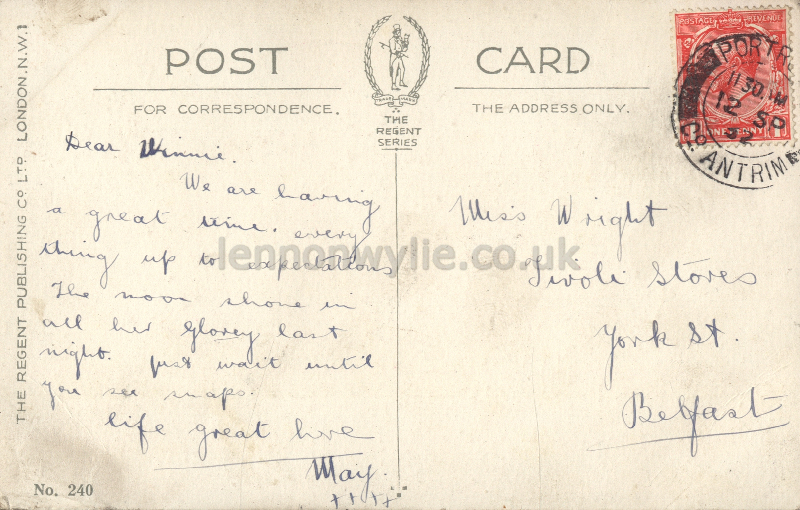 POST CARD
FOR CORRESPONDENCE.
THE ADDRESS ONLY.
TRADE MARK
THE
REGENT
SERIES
THE REGENT PUBLISHING Co LTD LONDON.N.W.1
No. 240
Dear Winnie.
We are having
a great time. every
thing up to expectations
The moon shone in
all her glorey last
night. Just wait until
you see snaps.
life great here
May.
++++
Miss Wright
Tivoli Stores
York St.
Belfast
POSTAGE REVENUE
ONE PENNY
PORTR
11 30 AM
12 SP
32
Co. ANTRIM
lennonwylie.co.uk